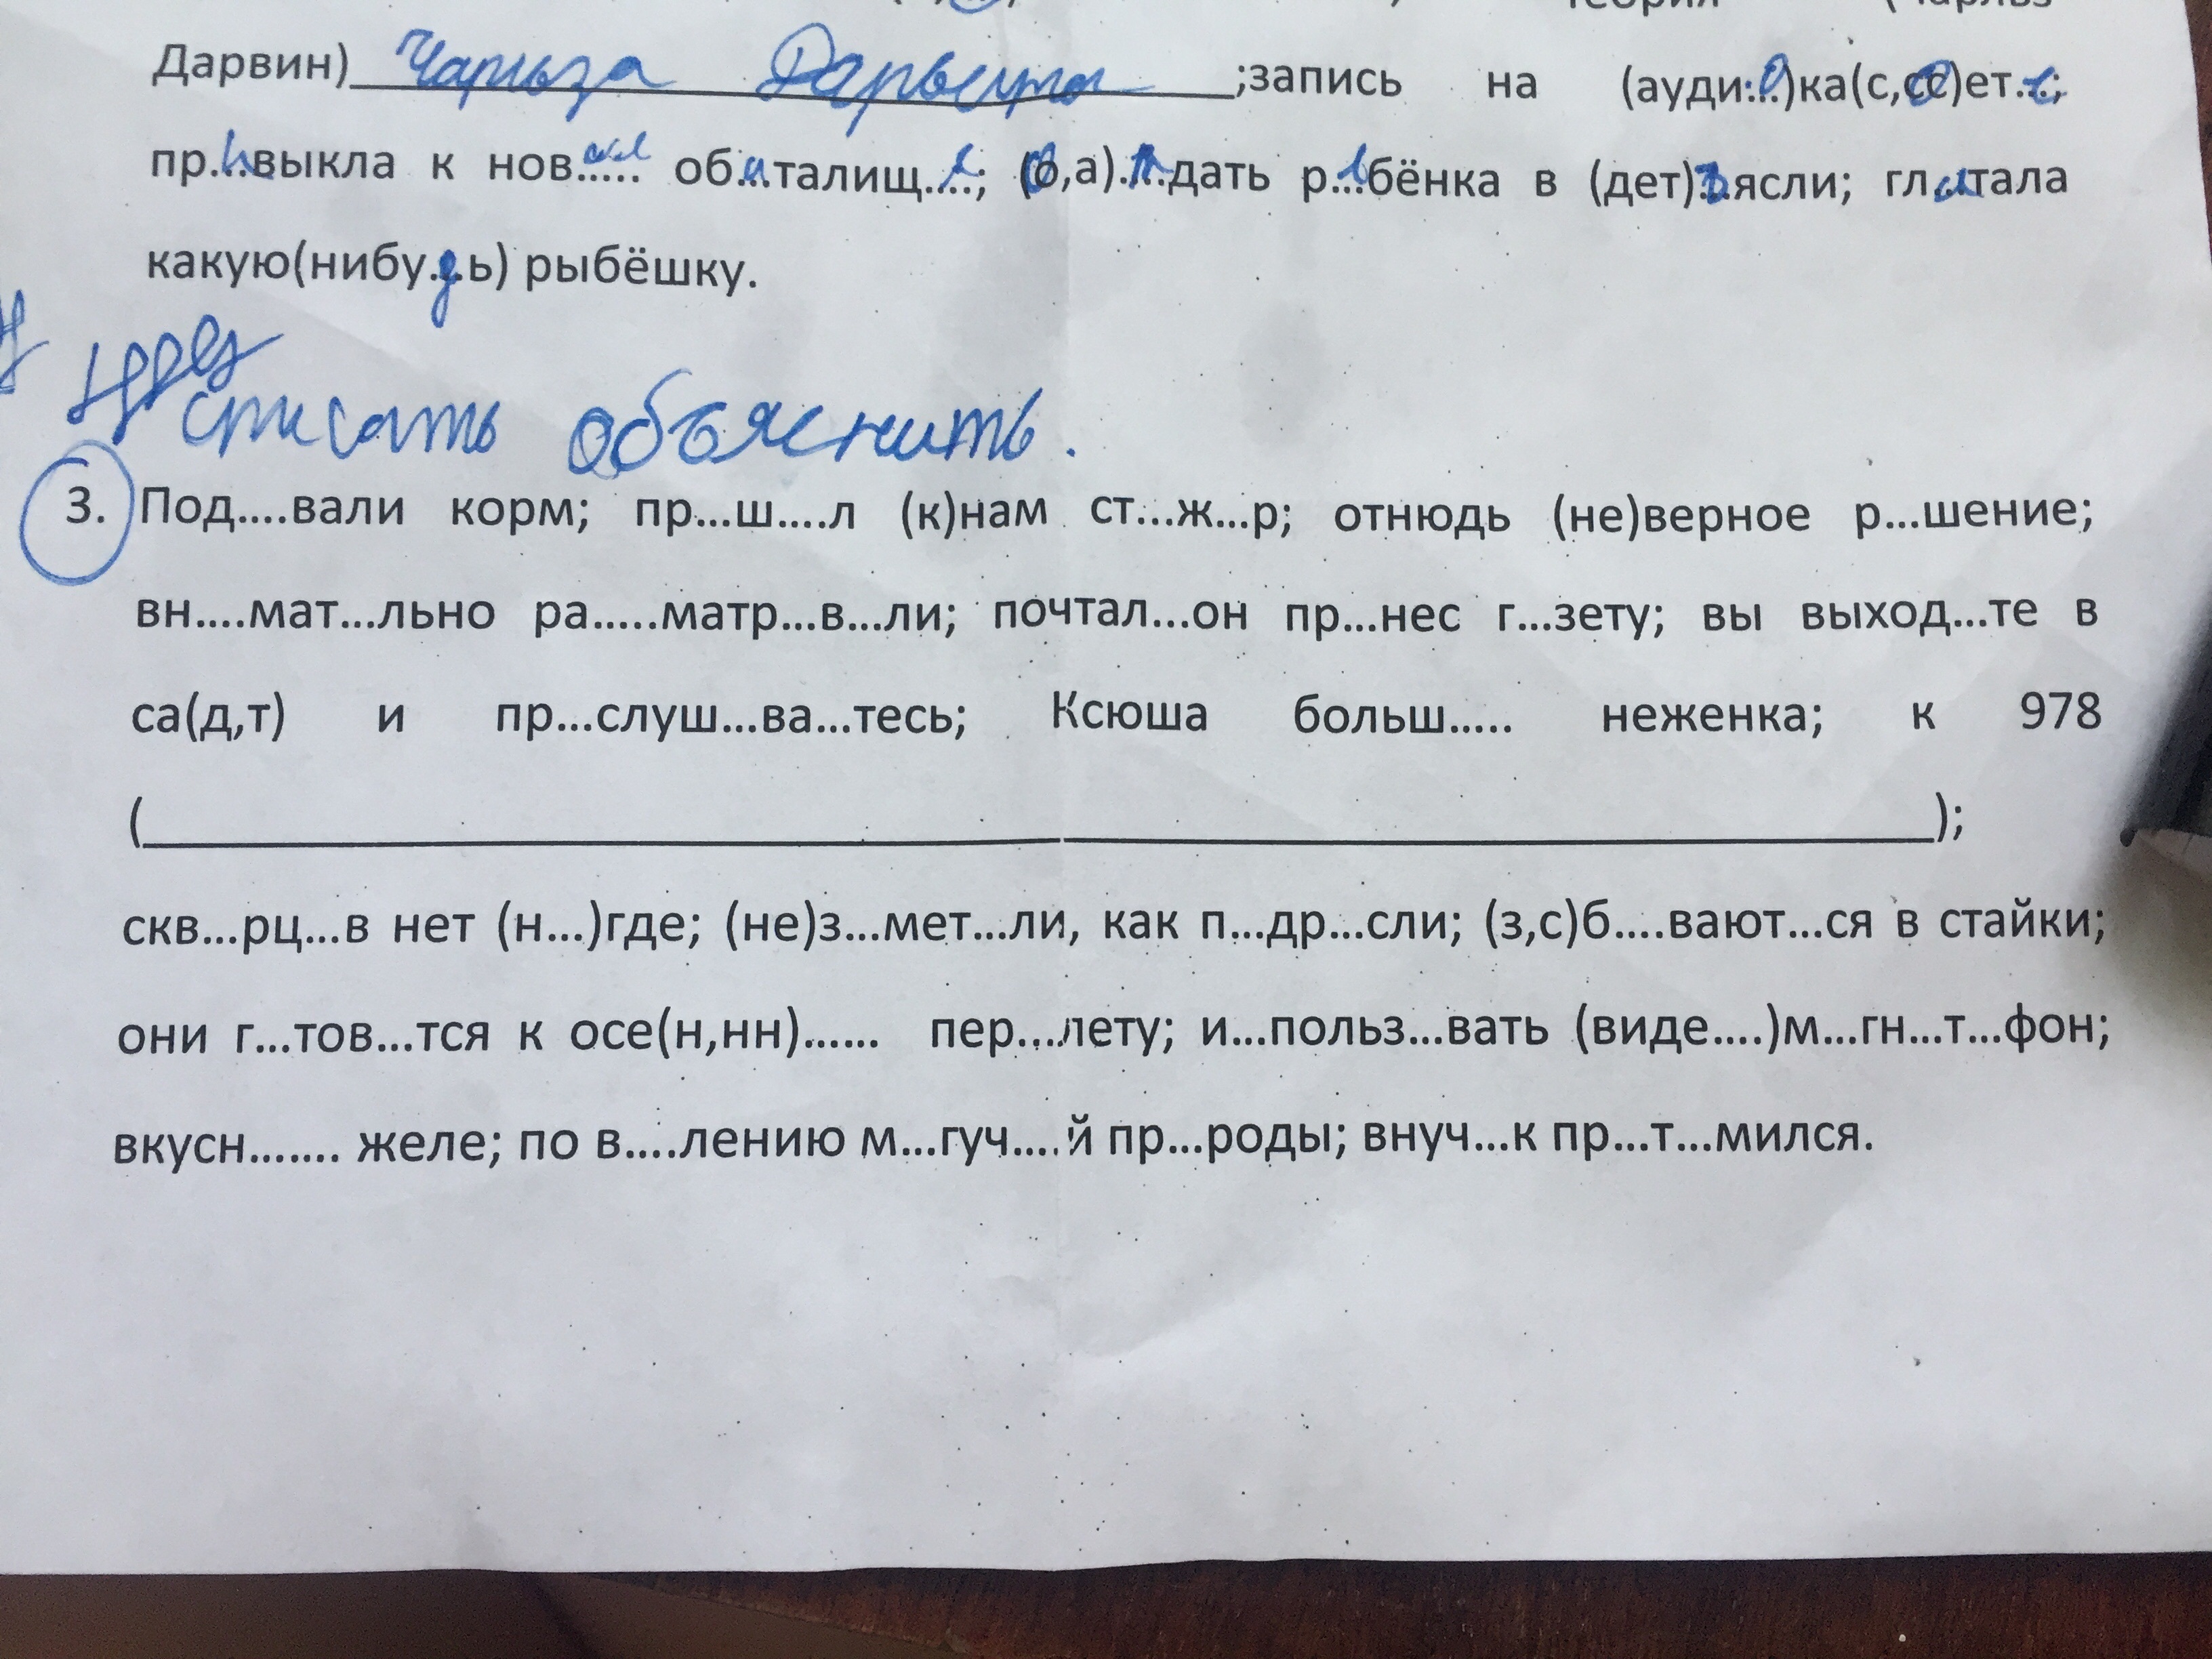 Дарвин) Чарльза Дарвина ;запись на (ауди...о)ка(с,сс)ет...е;
пр...ивыкла к нов.....ому об...италищ....е; (о,а)...тдать р...ебёнка в (дет)...ъясли; гл...отала
какую(нибу...дь) рыбёшку.
списать объяснить.
3. Под....вали корм; пр...ш....л (к)нам ст...ж...р; отнюдь (не)верное р...шение;
вн....мат...льно ра.....матр...в...ли; почтал...он пр...нес г...зету; вы выход...те в
са(д,т) и пр...слуш...ва...тесь; Ксюша больш..... неженка; к 978
(____________________);
скв...рц...в нет (н...)где; (не)з...мет...ли, как п...др...сли; (з,с)б....вают...ся в стайки;
они г...тов...тся к осе(н,нн)...... пер...лету; и...польз...вать (виде....)м...гн...т...фон;
вкусн....... желе; по в....лению м...гуч....й пр...роды; внуч...к пр...т...мился.